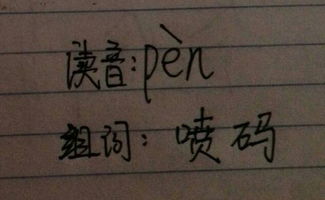 读音:pèn
组词：喷码